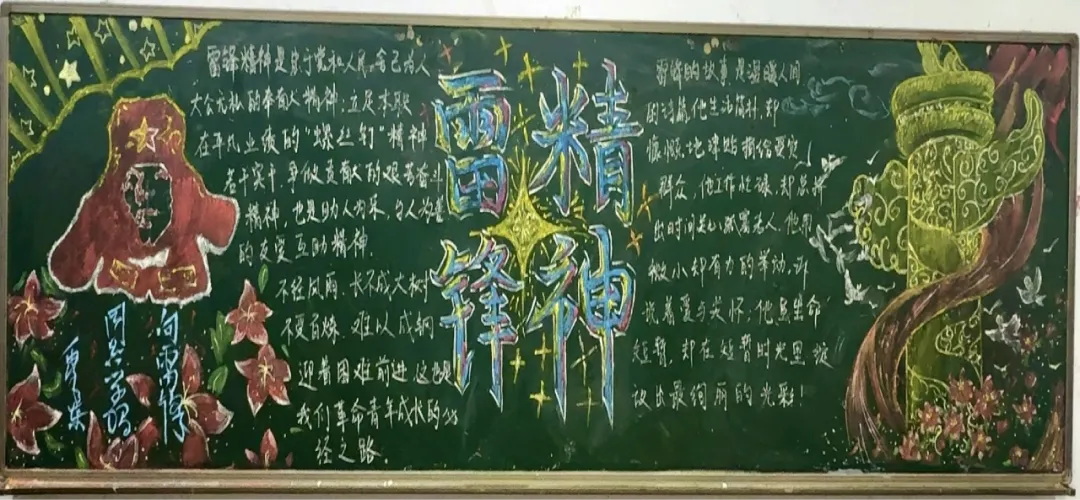 雷锋精神
雷锋精神是忠于党和人民、舍己为人
大公无私的奉献精神；立足本职、
在平凡业绩的“螺丝钉”精神
若干实中，争做贡献的艰苦奋斗
精神，也是助人为乐、与人为善
的友爱互助精神.
不经风雨，长不成大树
不更百炼，难以成钢
迎着困难前进，这也是
我们革命青年成长的必
经之路.
向雷锋
同志学习
毛泽东
雷锋的故事是温暖人间
的诗篇，他生活简朴，却
慷慨地津贴捐给受灾
群众，他工作忙碌，却总挤
出时间关心孤寡老人，他用
微小却有力的举动，诉
说着爱与关怀；他虽生命
短暂，却在短暂时光里绽
放出最绚丽的光彩！